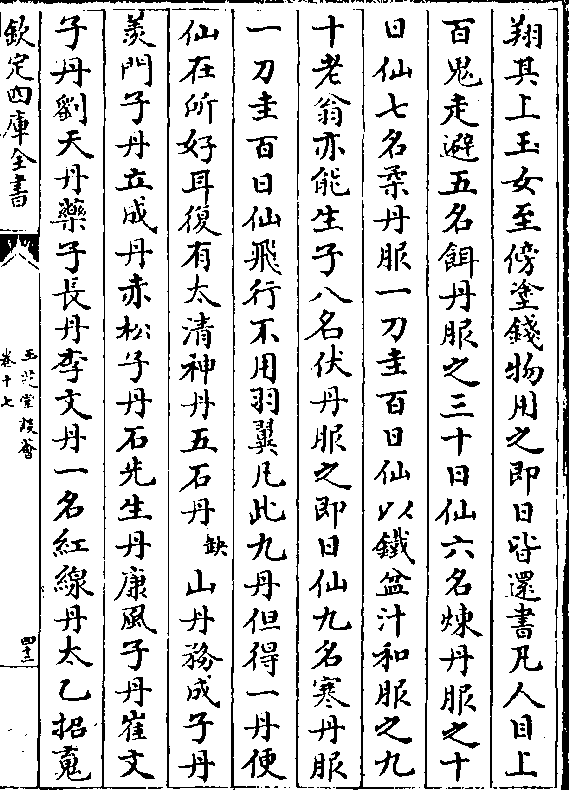 翔其上玉女至傍塗錢物用之即日皆還書凡人目上
百鬼走避五名餌丹服之三十日仙六名煉丹服之十
日仙七名柔丹服一刀圭百日仙以鐵盆汁和服之九
十老翁亦能生子八名伏丹服之即日仙九名寒丹服
一刀圭百日仙飛行不用羽翼凡此九丹但得一丹便
仙在所好耳復有太清神丹五石丹缺山丹務成子丹
羨門子丹立成丹赤松子丹石先生丹康風子丹崔文
子丹劉天丹藥子長丹李文丹一名紅線丹太乙招䰟
欽定四庫全書
玉芝堂談薈
卷十七
四十二